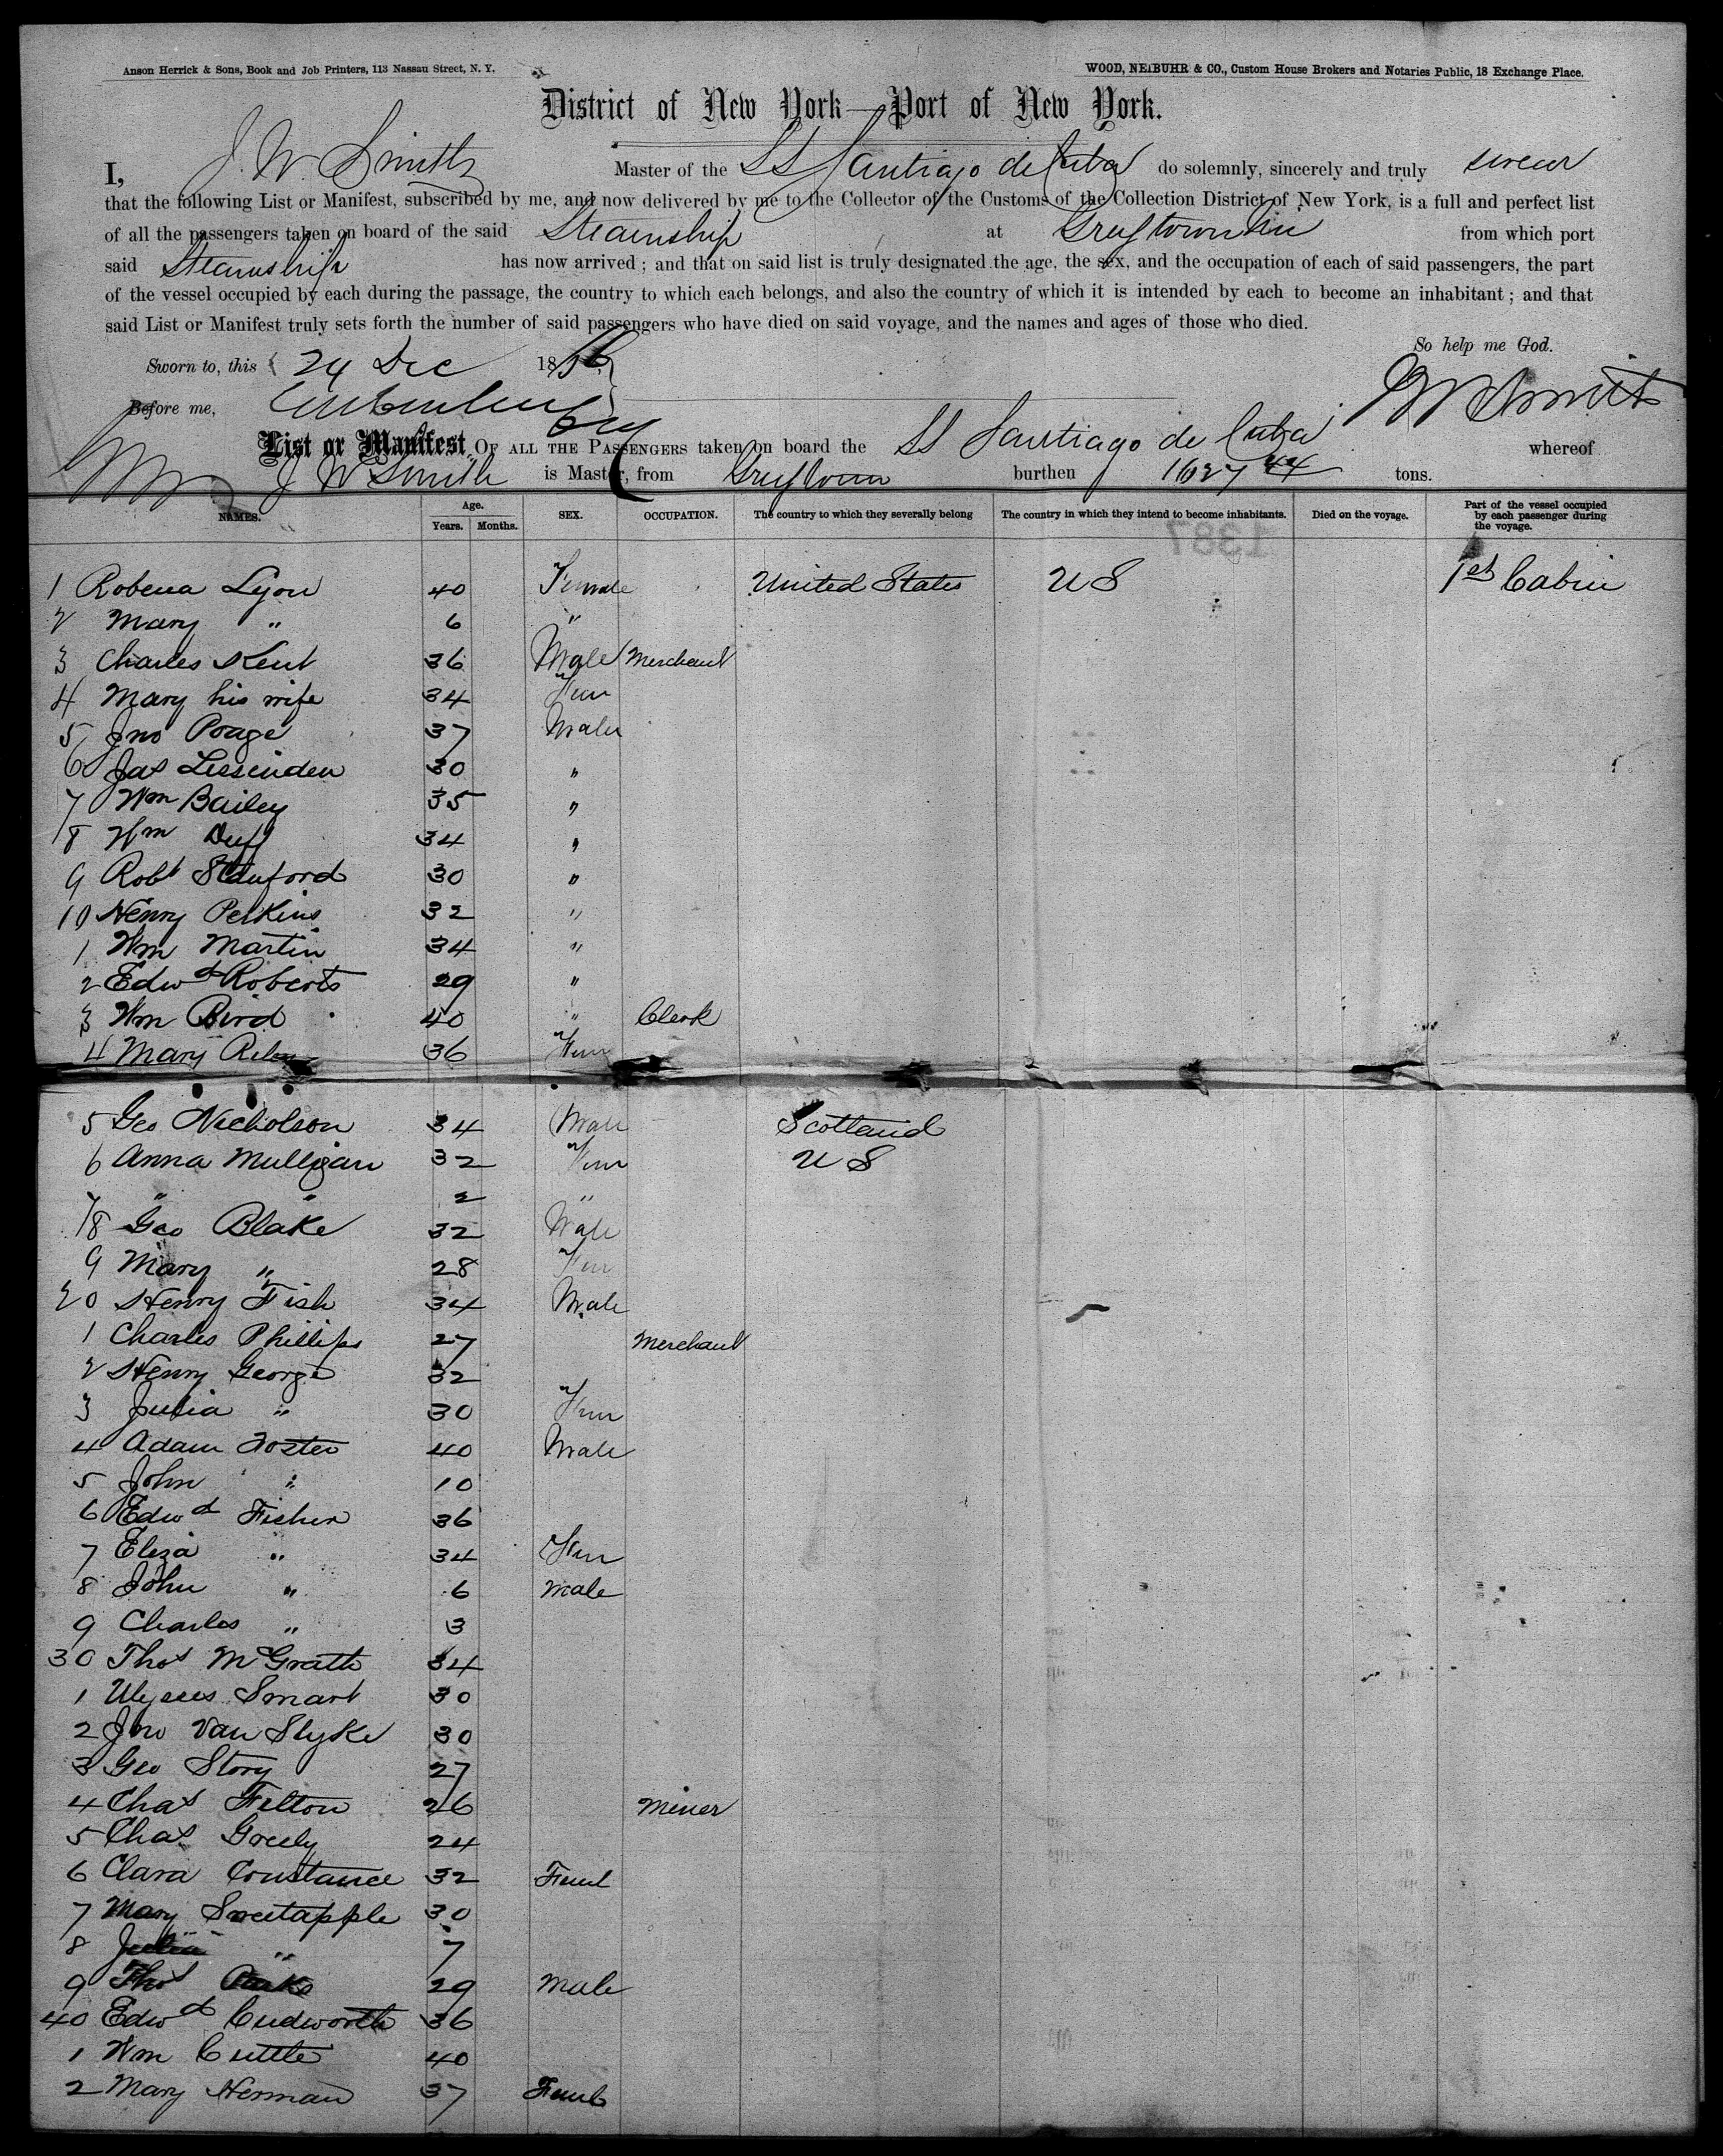 Anson Herrick & Sons, Book and Job Printers, 113 Nassau Street, N. Y. WOOD, NEIBUHR & CO., Custom House Brokers and Notaries Public, 18 Exchange Place.
District of New York—Port of New York.
I, J. W. Smith Master of the SS Santiago de Cuba do solemnly, sincerely and truly swear
that the following List or Manifest, subscribed by me, and now delivered by me to the Collector of the Customs of the Collection District of New York, is a full and perfect list
of all the passengers taken on board of the said Steamship at Greytown from which port
said Steamship has now arrived; and that on said list is truly designated the age, the sex, and the occupation of each of said passengers, the part
of the vessel occupied by each during the passage, the country to which each belongs, and also the country of which it is intended by each to become an inhabitant; and that
said List or Manifest truly sets forth the number of said passengers who have died on said voyage, and the names and ages of those who died.
So help me God.
Sworn to, this 24 Dec 18
Before me, J W Smith
List or Manifest OF ALL THE PASSENGERS taken on board the SS Santiago de Cuba whereof
J W Smith is Master, from Greytown burthen 1627 44 tons.
NAMES. Age. Years. Months. SEX. OCCUPATION. The country to which they severally belong The country in which they intend to become inhabitants. Died on the voyage. Part of the vessel occupied by each passenger during the voyage.
1387
1 Robena Lyon 40 Female United States U S 1st Cabin
2 Mary " 6 "
3 Charles Kent 36 Male Merchant
4 Mary his wife 34 Fem
5 Jno Poage 37 Male
6 Jas Lissenden 30 "
7 Wm Bailey 35 "
8 Wm Duff 34 "
9 Robt Stanford 30 "
10 Henry Perkins 32 "
1 Wm Martin 34 "
2 Edwd Roberts 29 "
3 Wm Bird 40 " Clerk
4 Mary Riley 36 Fem
5 Geo Nicholson 34 Male Scotland
6 Anna Mulligan 32 Fem U S
7 " " 2 "
18 Geo Blake 32 Male
9 Mary " 28 Fem
20 Henry Fish 34 Male
1 Charles Phillips 27 Merchant
2 Henry George 32
3 Julia " 30 Fem
4 Adam Foster 40 Male
5 John " 10
6 Edwd Fisher 36
7 Eliza " 34 Fem
8 John " 6 Male
9 Charles " 3
30 Thos McGrath 34
1 Ulysses Smart 30
2 Jno Van Slyke 30
3 Geo Story 27
4 Chas Felton 26 Miner
5 Chas Greely 24
6 Clara Constance 32 Feml
7 Mary Sweetapple 30
8 Julia " 7
9 Thos 29 Male
40 Edwd Cudworth 36
1 Wm Cuttle 40
2 Mary Herman 37 Feml